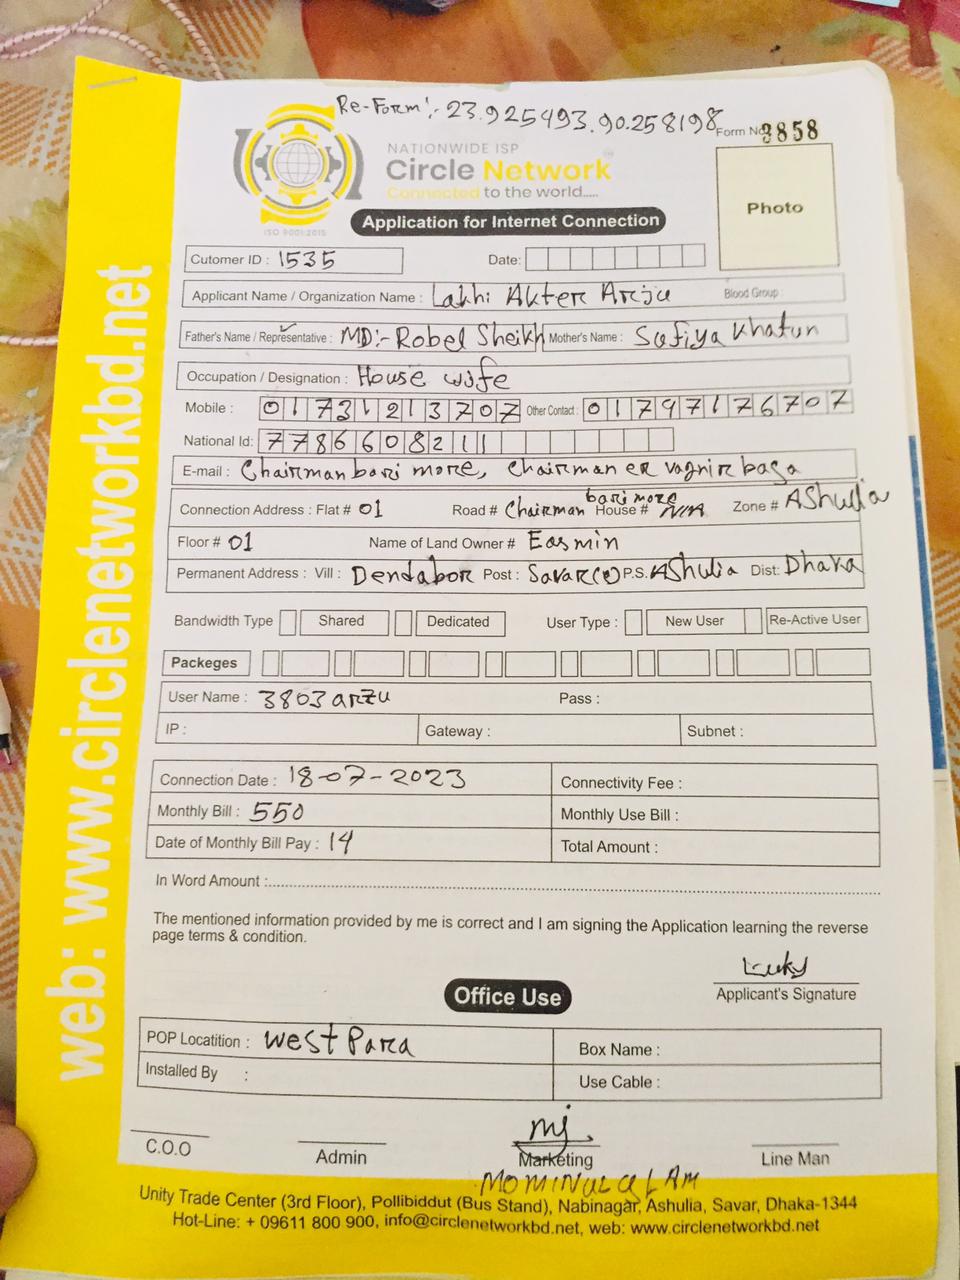 Re-Form:- 23.925493.90.258198
Form No 3858
NATIONWIDE ISP
Circle Network
Connected to the world.....
ISO 9001:2015
Photo
Application for Internet Connection
Cutomer ID : 1535 Date:
Applicant Name / Organization Name : Lakhi Akter Arju Blood Group :
Father's Name / Representative : MD:- Robel Sheikh Mother's Name : Sufiya Khatun
Occupation / Designation : House wife
Mobile : 01731213707 Other Contact : 01797176707
National Id: 7786608211
E-mail : Chairman bari more, Chairman er vagnir basa
Connection Address : Flat # 01 Road # Chairman bari more House # N/A Zone # AShulia
Floor # 01 Name of Land Owner # Easmin
Permanent Address : Vill : Dendabor Post : Savar P.S. AShulia Dist: Dhaka
Bandwidth Type Shared Dedicated User Type : New User Re-Active User
Packeges
User Name : 3803arzu Pass :
IP : Gateway : Subnet :
Connection Date : 18-07-2023 Connectivity Fee :
Monthly Bill : 550 Monthly Use Bill :
Date of Monthly Bill Pay : 14 Total Amount :
In Word Amount :
The mentioned information provided by me is correct and I am signing the Application learning the reverse
page terms & condition.
Lucky
Applicant's Signature
Office Use
POP Locatition : West Para Box Name :
Installed By : Use Cable :
mj
C.O.O Admin Marketing Line Man
Unity Trade Center (3rd Floor), Pollibiddut (Bus Stand), Nabinagar, Ashulia, Savar, Dhaka-1344
Hot-Line: + 09611 800 900, info@circlenetworkbd.net, web: www.circlenetworkbd.net
web: www.circlenetworkbd.net